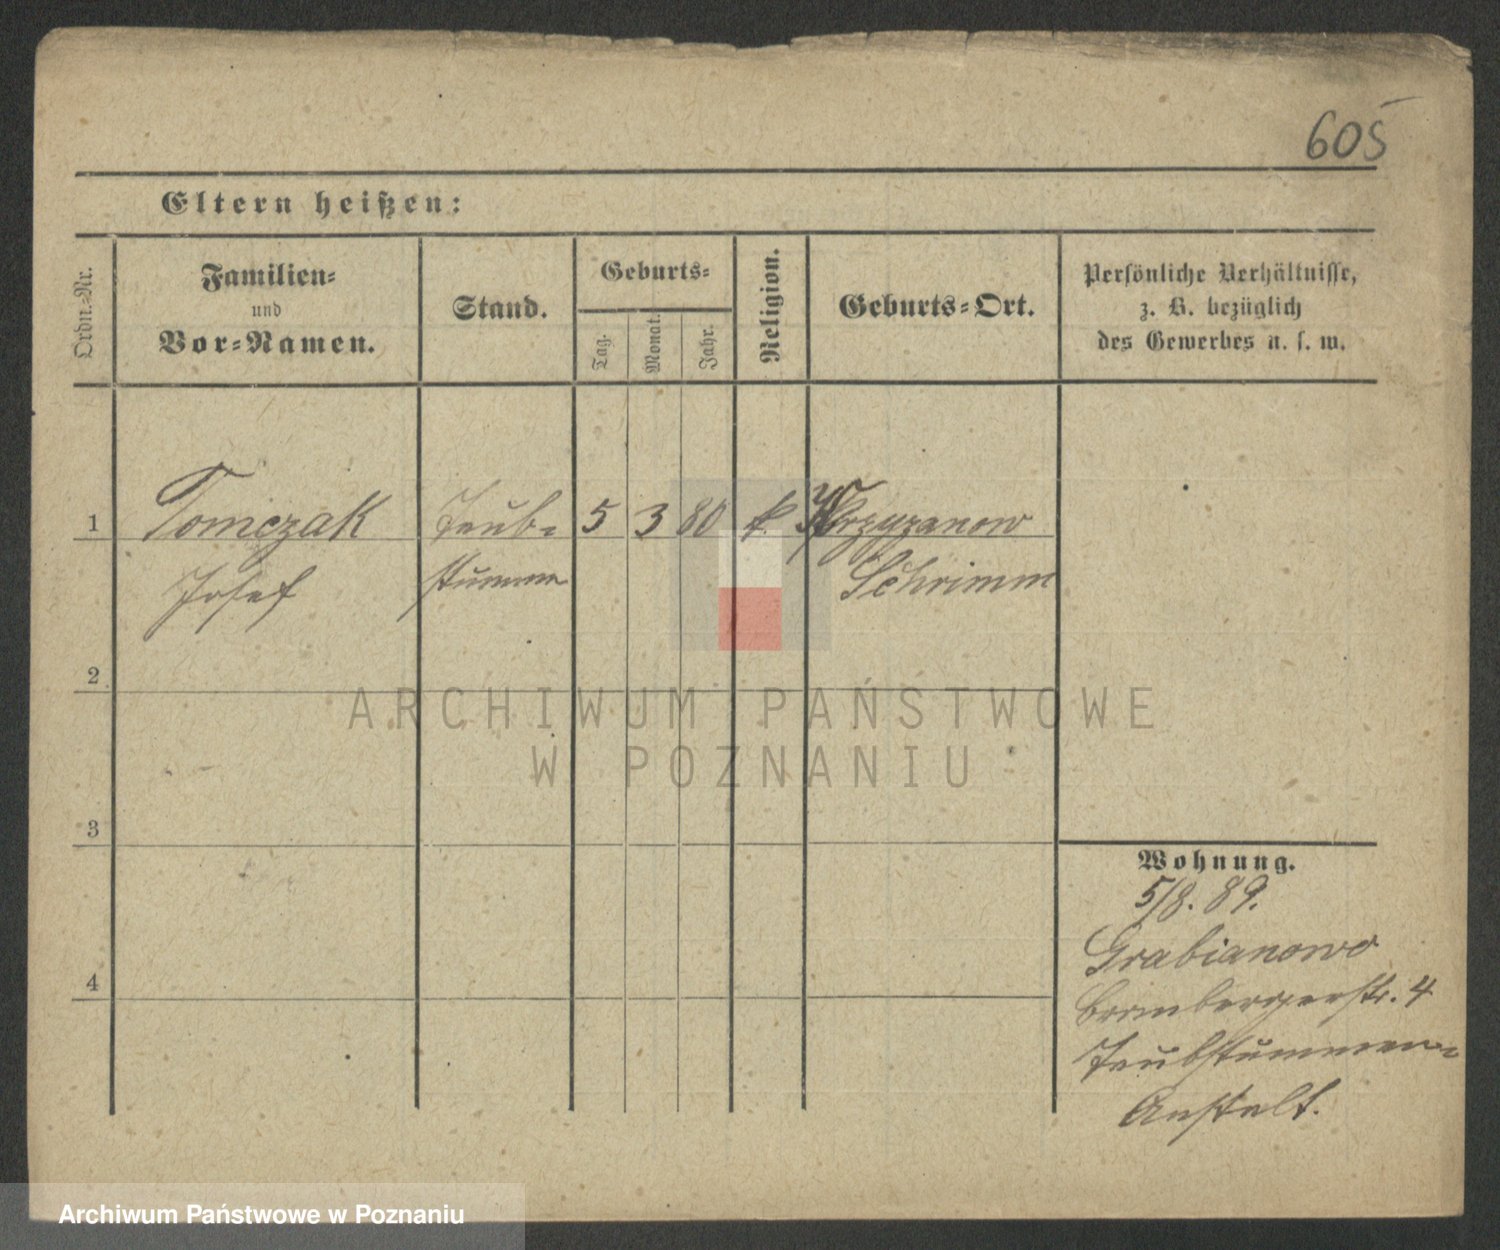 605
Eltern heißen:
Ordn.-Nr.
Familien-
und
Vor-Namen.
Stand.
Geburts-
Tag.
Monat.
Jahr.
Religion.
Geburts-Ort.
Persönliche Verhältnisse,
z. B. bezüglich
des Gewerbes u. s. w.
1
Tomczak
Josef
Taub-
stumm
5
3
80
k.
Krzyzanow
Schrimm
2
3
4
Wohnung.
5/8. 89.
Grabianowo
Brombergerstr. 4
Taubstummen-
Anstalt.
ARCHIWUM PAŃSTWOWE
W POZNANIU
Archiwum Państwowe w Poznaniu